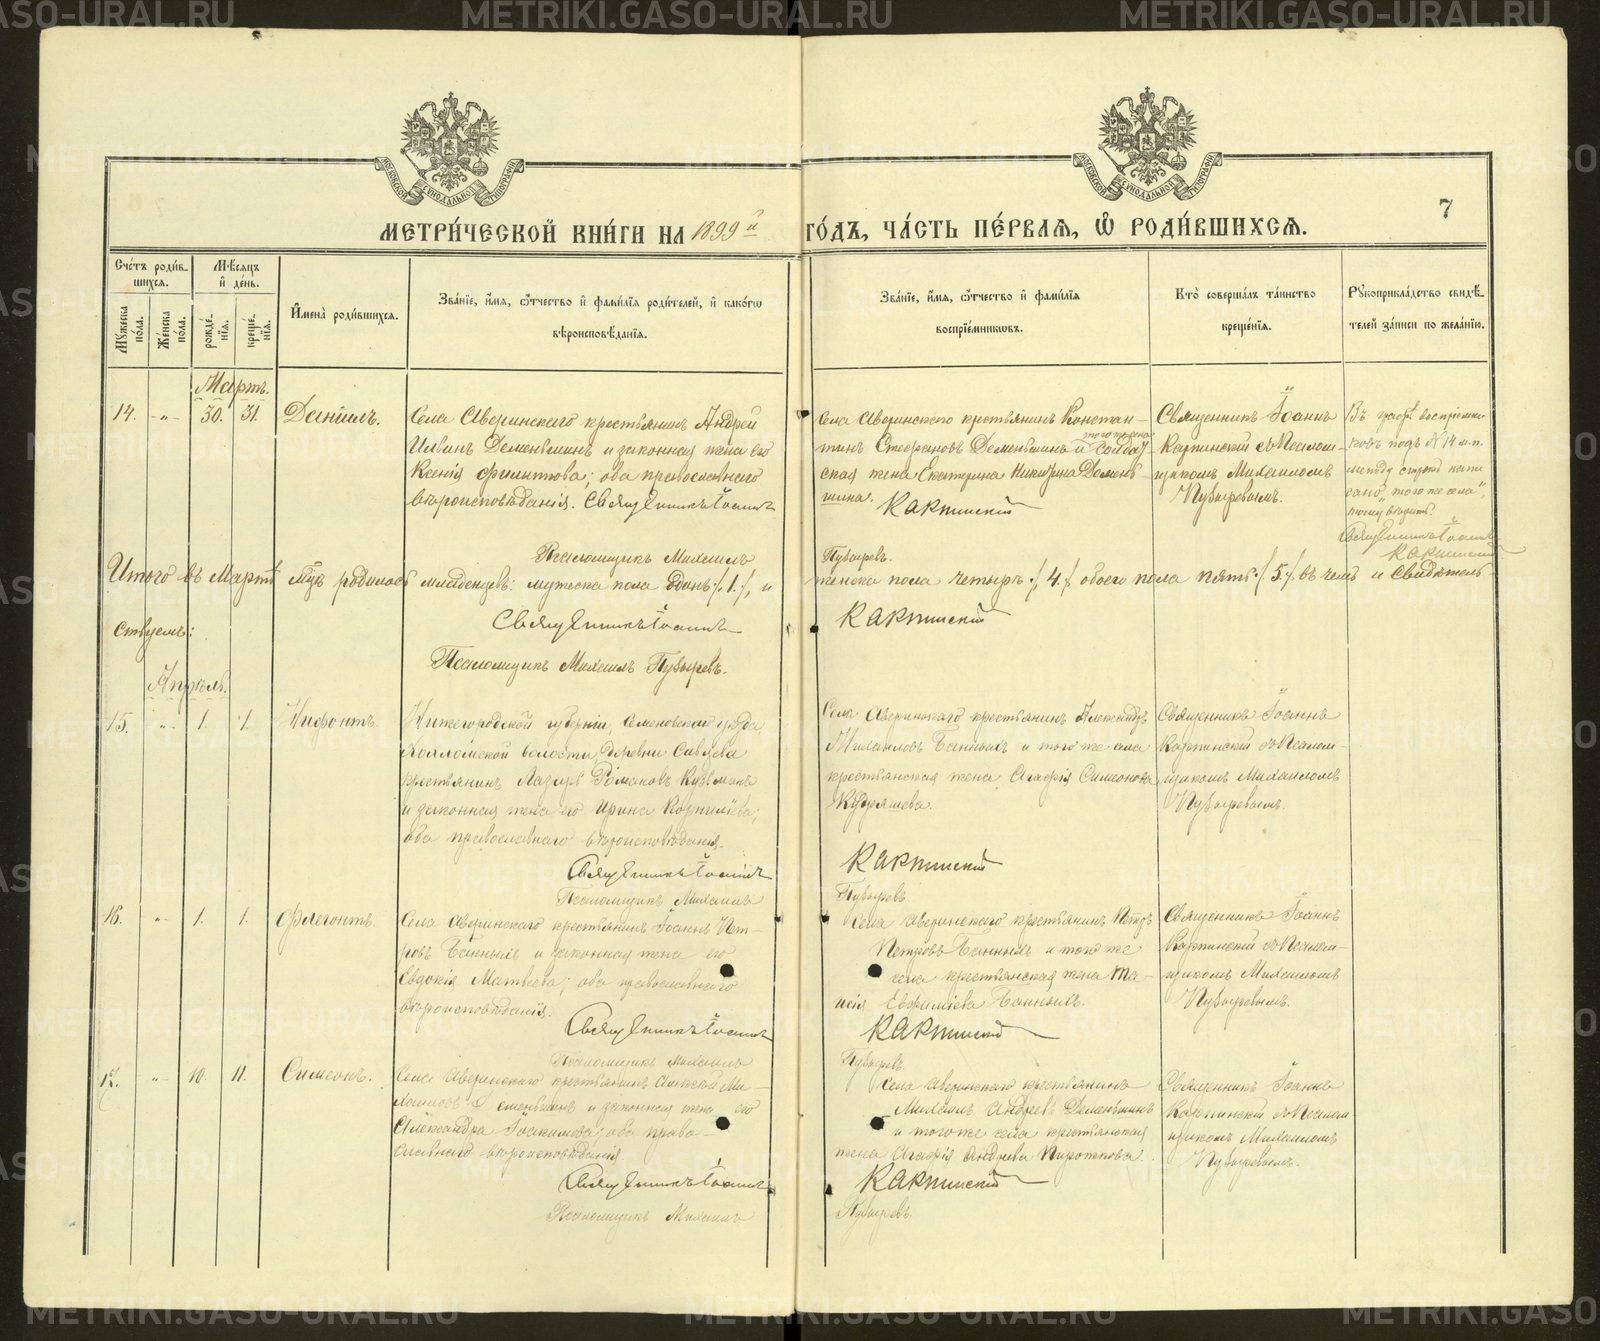 МЕТРИ́ЧЕСКОЙ КНИ́ГИ НА 1899й ГО́ДЪ, ЧА́СТЬ ПЕ́РВАЯ, Ѽ РОДИ́ВШИХСЯ.
7
Сче́тъ роди́вшихся.
Мѣсяцъ и де́нь.
Мꙋжеска по́ла.
Же́нска по́ла.
рожде́нїѧ.
креще́нїѧ.
Имена̀ роди́вшихсѧ.
Зва́нїе, и́мѧ, ѻ҆́тчество и҆ фами́лїѧ роди́телей, и҆ како́гѡ
вѣроисповѣ́данїѧ.
Зва́нїе, и́мѧ, ѻ҆́тчество и҆ фами́лїѧ
воспрїе́мникѡвъ.
Кто̀ соверша́лъ та́инство
креще́нїѧ.
Рꙋкоприкла́дство свидѣ́-
телей за́писи по жела́нїю.
Мартъ.
14. -„- 30. 31. Данiилъ.
Села Аверинскаго крестьянинъ Андрей
Иванъ Деменьшинъ и законная жена его
Ксенiя Филиппова; оба православнаго
вѣроисповѣданiя. Священникъ Iоаннъ
Псаломщикъ Михаилъ
Села Аверинскаго крестьянинъ Констан-
тинъ Стефановъ Деменьшинъ и того же села солдат-
ская жена Екатерина Никитина Демень-
шина. Карпинскiй
Пузыревъ.
Священникъ Iоаннъ
Карпинскiй съ Псалом-
щикомъ Михаиломъ
Пузыревымъ.
Въ графѣ воспрiемни-
ковъ подъ № 14 м. п.
между строкъ напи-
сано „того же села“,
тому вѣрить.
Священникъ Iоаннъ
Карпинскiй
Итого въ Мартѣ м-цѣ родилось младенцевъ: мужеска пола одинъ /.1./, и женска пола четыре /.4./ обоего пола пять /.5./. въ чемъ и свидѣтель-
ствуемъ:
Священникъ Iоаннъ Карпинскiй
Псаломщикъ Михаилъ Пузыревъ.
Апрѣль.
15. -„- 1. 1. Нифонтъ
Нижегородской губернiи, Семеновскаго уѣзда,
волости, деревни
крестьянинъ Лазарь Романовъ Кузьминъ
и законная жена его Ирина Корнилiева;
оба православнаго вѣроисповѣданiя.
Священникъ Iоаннъ
Псаломщикъ Михаилъ
Села Аверинскаго крестьянинъ Александръ
Михаиловъ Банныхъ и того же села
крестьянская жена Агафiя Симеонова
Кудряшева.
Карпинскiй
Пузыревъ
Священникъ Iоаннъ
Карпинскiй съ Псалом-
щикомъ Михаиломъ
Пузыревымъ.
16. -„- 1. 1. Флегонтъ.
Села Аверинскаго крестьянинъ Iоаннъ Пет-
ровъ Банныхъ и законная жена его
Евдокiя Матвѣева; оба православнаго
вѣроисповѣданiя.
Священникъ Iоаннъ
Псаломщикъ Михаилъ
Села Аверинскаго крестьянинъ Петръ
Петровъ Банныхъ и того же
села крестьянская жена Та-
исiя Евфимiева Банныхъ.
Карпинскiй
Пузыревъ
Священникъ Iоаннъ
Карпинскiй съ Псалом-
щикомъ Михаиломъ
Пузыревымъ.
17. -„- 10. 11. Симеонъ.
Села Аверинскаго крестьянинъ Алексѣй Ми-
хаиловъ Деменьшинъ и законная жена его
Александра Iоакимова; оба право-
славнаго вѣроисповѣданiя.
Священникъ Iоаннъ
Псаломщикъ Михаилъ
Села Аверинскаго крестьянинъ
Михаилъ Андреевъ Деменьшинъ
и того же села крестьянская
жена Агафiя Андреева Пироткова.
Карпинскiй
Пузыревъ.
Священникъ Iоаннъ
Карпинскiй съ Псалом-
щикомъ Михаиломъ
Пузыревымъ.
METRIKI.GASO-URAL.RU